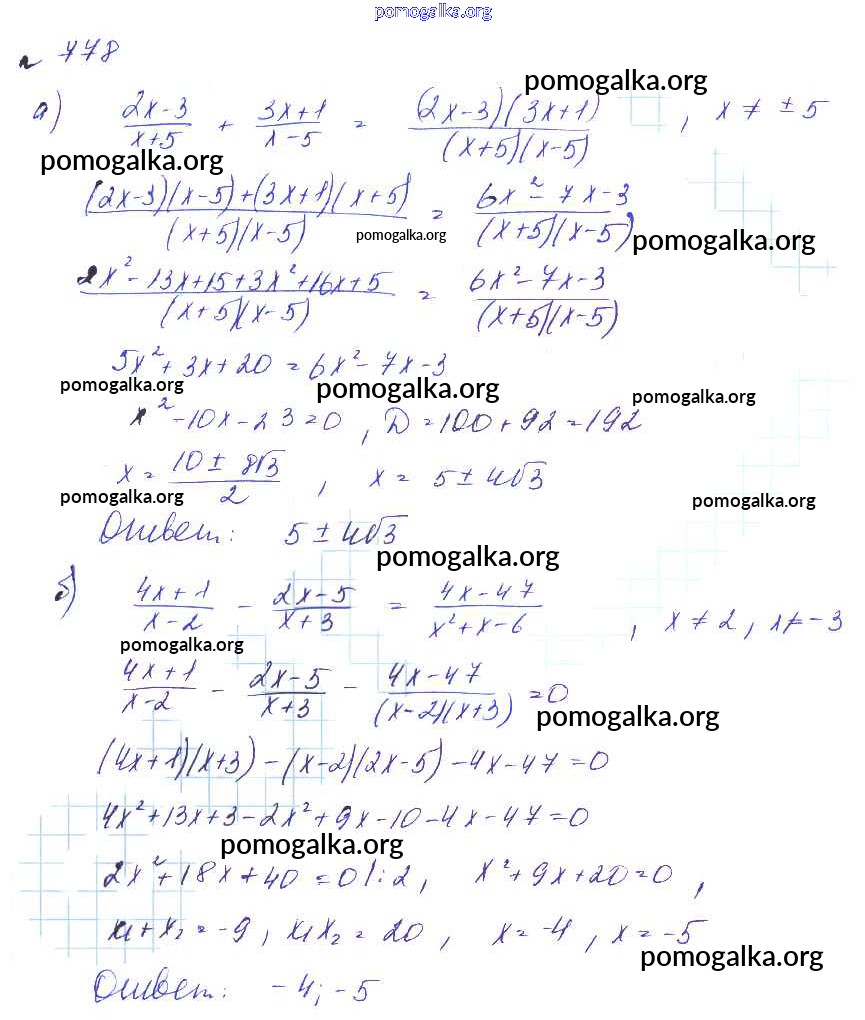 pomogalka.org
№ 778
pomogalka.org
а) (2x-3)/(x+5) + (3x+1)/(x-5) = (2x-3)(3x+1)/((x+5)(x-5)), x ≠ ±5
pomogalka.org
((2x-3)(x-5)+(3x+1)(x+5))/((x+5)(x-5)) = (6x²-7x-3)/((x+5)(x-5))
pomogalka.org pomogalka.org
(2x²-13x+15+3x²+16x+5)/((x+5)(x-5)) = (6x²-7x-3)/((x+5)(x-5))
5x²+3x+20=6x²-7x-3
pomogalka.org pomogalka.org pomogalka.org
x²-10x-23=0, D=100+92=192
x = (10±8√3)/2, x = 5±4√3
pomogalka.org pomogalka.org
Ответ: 5±4√3
pomogalka.org
б) (4x+1)/(x-2) - (2x-5)/(x+3) = (4x-47)/(x²+x-6), x≠2, x≠-3
pomogalka.org
(4x+1)/(x-2) - (2x-5)/(x+3) - (4x-47)/((x-2)(x+3)) =0
pomogalka.org
(4x+1)(x+3)-(x-2)(2x-5)-4x-47=0
4x²+13x+3-2x²+9x-10-4x-47=0
pomogalka.org
2x²+18x+40=0 |:2, x²+9x+20=0,
x₁+x₂=-9, x₁x₂=20, x=-4, x=-5
pomogalka.org
Ответ: -4; -5